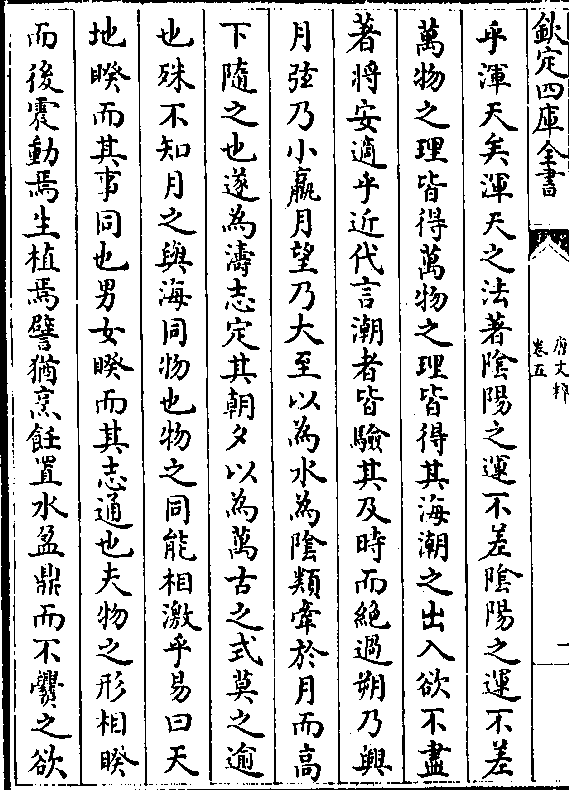 欽定四庫全書
唐文粹
卷五
一
乎渾天矣渾天之法著陰陽之運不差陰陽之運不差
萬物之理皆得萬物之理皆得其海潮之出入欲不盡
著將安適乎近代言潮者皆驗其及時而絶過朔乃興
月弦乃小羸月望乃大至以為水為陰類牽於月而高
下隨之也遂為濤志定其朝夕以為萬古之式莫之逾
也殊不知月之與海同物也物之同能相激乎易曰天
地睽而其事同也男女睽而其志通也夫物之形相睽
而後震動焉生植焉譬猶烹飪置水盈鼎而不爨之欲